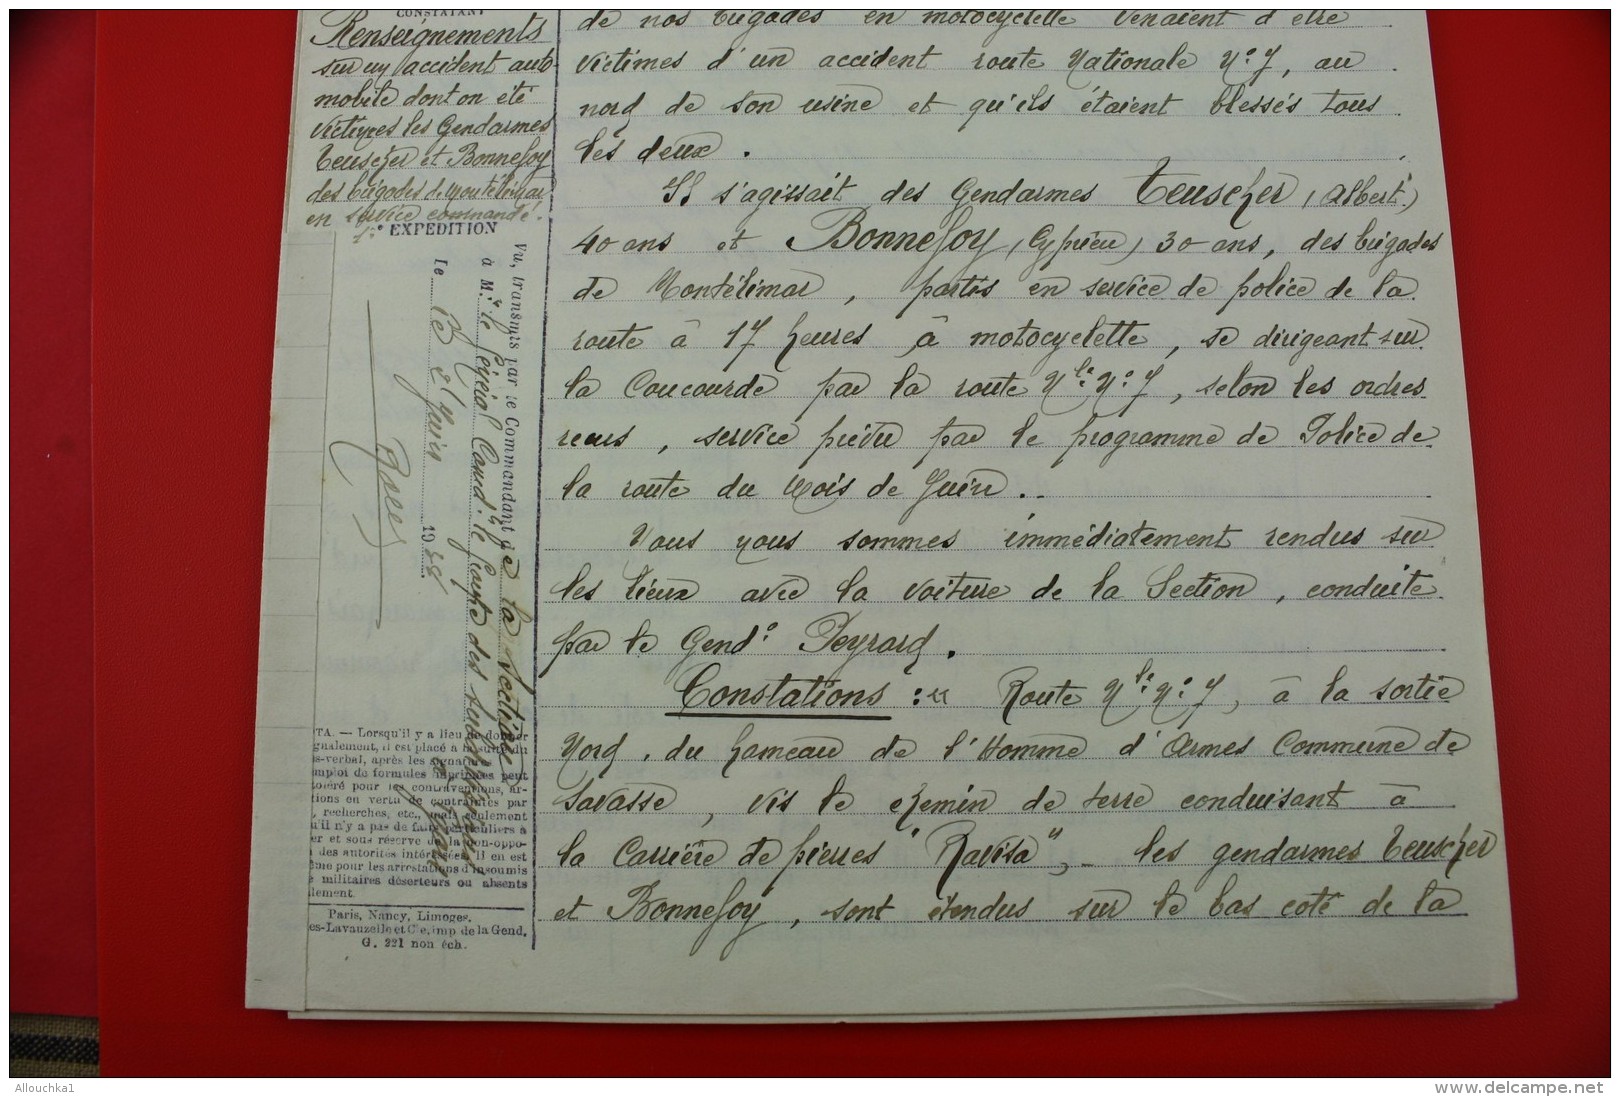 CONSTATANT
Renseignements
sur un accident auto
mobile dont on été
victimes les Gendarmes
Teuscher et Bonnefoy
des brigades de Montélimar
en service commandé.
1re EXPEDITION
Vu, transmis par le Commandant de la Section
à M. le Général Comdt. le
le 21 Juin 19
TA. — Lorsqu'il y a lieu de donner
gnalement, il est placé à la suite du
s-verbal, après les signatures
mploi de formules imprimées peut
oléré pour les contraventions, ar-
tions en vertu de contraintes par
, recherches, etc., mais seulement
u'il n'y a pas de faits particuliers à
er et sous réserve de la non-oppo-
des autorités intéressées. Il en est
me pour les arrestations d'insoumis
militaires déserteurs ou absents
lement.
Paris, Nancy, Limoges.
es-Lavauzelle et Cie, imp de la Gend.
G. 221 non éch.
de nos brigades en motocyclette venaient d'être
victimes d'un accident route Nationale N° 7, au
nord de son usine et qu'ils étaient blessés tous
les deux.
Il s'agissait des Gendarmes Teuscher, (Albert)
40 ans et Bonnefoy, (Cyprien) 30 ans, des brigades
de Montélimar, partis en service de police de la
route à 17 heures à motocyclette, se dirigeant sur
la Coucourde par la route Nle N° 7, selon les ordres
reçus, service prévu par le programme de Police de
la route du Mois de Juin.
Nous nous sommes immédiatement rendus sur
les lieux avec la voiture de la Section, conduite
par le Gend. Peyrard.
Constations :- Route Nle N° 7, à la sortie
Nord, du hameau de l'Homme d'Armes Commune de
Savasse, vis le chemin de terre conduisant à
la Carrière de pierres "Ravisa", les gendarmes Teuscher
et Bonnefoy, sont étendus sur le bas coté de la
Allouchka1
www.delcampe.net